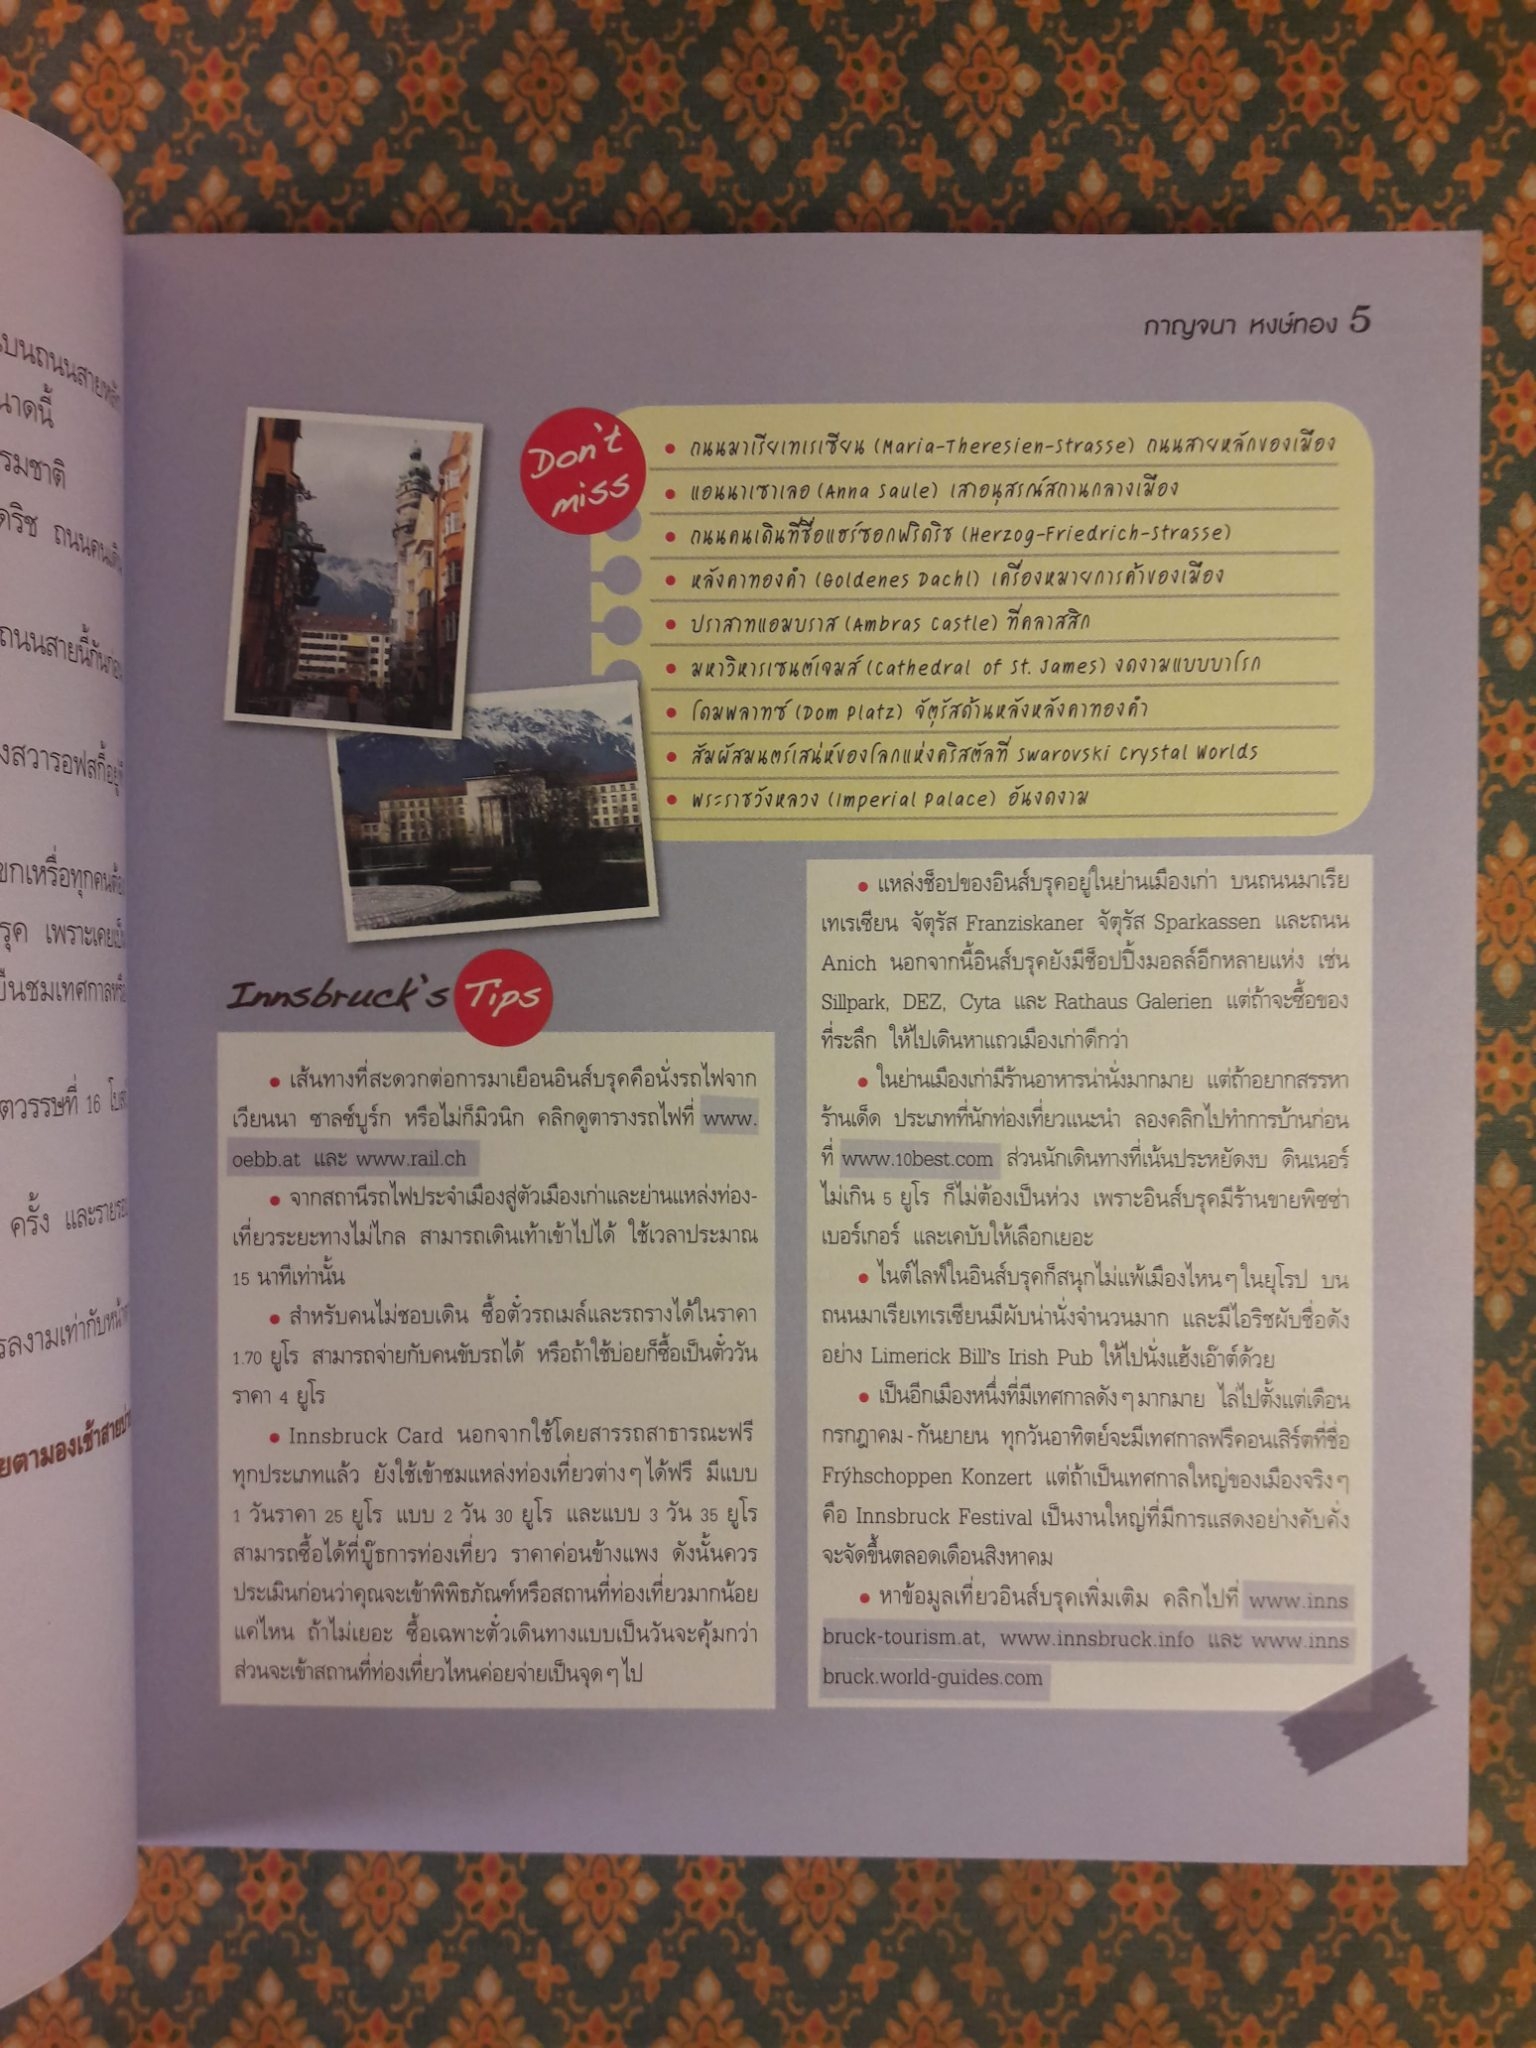 กาญจนา หงษ์ทอง 5
Don't
miss
• ถนนมาเรียเทเรเซียน (Maria-Theresien-Strasse) ถนนสายหลักของเมือง
• แอนนาเซาเลอ (Anna Saule) เสาอนุสรณ์สถานกลางเมือง
• ถนนคนเดินที่ชื่อแฮร์ซอกฟริดริช (Herzog-Friedrich-Strasse)
• หลังคาทองคำ (Goldenes Dachl) เครื่องหมายการค้าของเมือง
• ปราสาทแอมบราส (Ambras Castle) ที่คลาสสิก
• มหาวิหารเซนต์เจมส์ (Cathedral of St. James) งดงามแบบบาโรก
• โดมพลาทซ์ (Dom Platz) จัตุรัสด้านหลังหลังคาทองคำ
• สัมผัสมนตร์เสน่ห์ของโลกแห่งคริสตัลที่ Swarovski Crystal Worlds
• พระราชวังหลวง (Imperial Palace) อันงดงาม
Innsbruck's Tips
• เส้นทางที่สะดวกต่อการมาเยือนอินส์บรุคคือนั่งรถไฟจาก
เวียนนา ซาลซ์บูร์ก หรือไม่ก็มิวนิก คลิกดูตารางรถไฟที่ www.
oebb.at และ www.rail.ch
• จากสถานีรถไฟประจำเมืองสู่ตัวเมืองเก่าและย่านแหล่งท่อง-
เที่ยวระยะทางไม่ไกล สามารถเดินเท้าเข้าไปได้ ใช้เวลาประมาณ
15 นาทีเท่านั้น
• สำหรับคนไม่ชอบเดิน ซื้อตั๋วรถเมล์และรถรางได้ในราคา
1.70 ยูโร สามารถจ่ายกับคนขับรถได้ หรือถ้าใช้บ่อยก็ซื้อเป็นตั๋ววัน
ราคา 4 ยูโร
• Innsbruck Card นอกจากใช้โดยสารรถสาธารณะฟรี
ทุกประเภทแล้ว ยังใช้เข้าชมแหล่งท่องเที่ยวต่างๆ ได้ฟรี มีแบบ
1 วันราคา 25 ยูโร แบบ 2 วัน 30 ยูโร และแบบ 3 วัน 35 ยูโร
สามารถซื้อได้ที่บู๊ธการท่องเที่ยว ราคาค่อนข้างแพง ดังนั้นควร
ประเมินก่อนว่าคุณจะเข้าพิพิธภัณฑ์หรือสถานที่ท่องเที่ยวมากน้อย
แค่ไหน ถ้าไม่เยอะ ซื้อเฉพาะตั๋วเดินทางแบบเป็นวันจะคุ้มกว่า
ส่วนจะเข้าสถานที่ท่องเที่ยวไหนค่อยจ่ายเป็นจุดๆ ไป
• แหล่งช็อปของอินส์บรุคอยู่ในย่านเมืองเก่า บนถนนมาเรีย
เทเรเซียน จัตุรัส Franziskaner จัตุรัส Sparkassen และถนน
Anich นอกจากนี้อินส์บรุคยังมีช็อปปิ้งมอลล์อีกหลายแห่ง เช่น
Sillpark, DEZ, Cyta และ Rathaus Galerien แต่ถ้าจะซื้อของ
ที่ระลึก ให้ไปเดินหาแถวเมืองเก่าดีกว่า
• ในย่านเมืองเก่ามีร้านอาหารน่านั่งมากมาย แต่ถ้าอยากสรรหา
ร้านเด็ด ประเภทที่นักท่องเที่ยวแนะนำ ลองคลิกไปทำการบ้านก่อน
ที่ www.10best.com ส่วนนักเดินทางที่เน้นประหยัดงบ ดินเนอร์
ไม่เกิน 5 ยูโร ก็ไม่ต้องเป็นห่วง เพราะอินส์บรุคมีร้านขายพิซซ่า
เบอร์เกอร์ และเคบับให้เลือกเยอะ
• ไนต์ไลฟ์ในอินส์บรุคก็สนุกไม่แพ้เมืองไหนๆ ในยุโรป บน
ถนนมาเรียเทเรเซียนมีผับน่านั่งจำนวนมาก และมีไอริชผับชื่อดัง
อย่าง Limerick Bill's Irish Pub ให้ไปนั่งแฮ้งเอ๊าต์ด้วย
• เป็นอีกเมืองหนึ่งที่มีเทศกาลดังๆ มากมาย ไล่ไปตั้งแต่เดือน
กรกฎาคม-กันยายน ทุกวันอาทิตย์จะมีเทศกาลฟรีคอนเสิร์ตที่ชื่อ
Frýhschoppen Konzert แต่ถ้าเป็นเทศกาลใหญ่ของเมืองจริงๆ
คือ Innsbruck Festival เป็นงานใหญ่ที่มีการแสดงอย่างคับคั่ง
จะจัดขึ้นตลอดเดือนสิงหาคม
• หาข้อมูลเที่ยวอินส์บรุคเพิ่มเติม คลิกไปที่ www.inns
bruck-tourism.at, www.innsbruck.info และ www.inns
bruck.world-guides.com